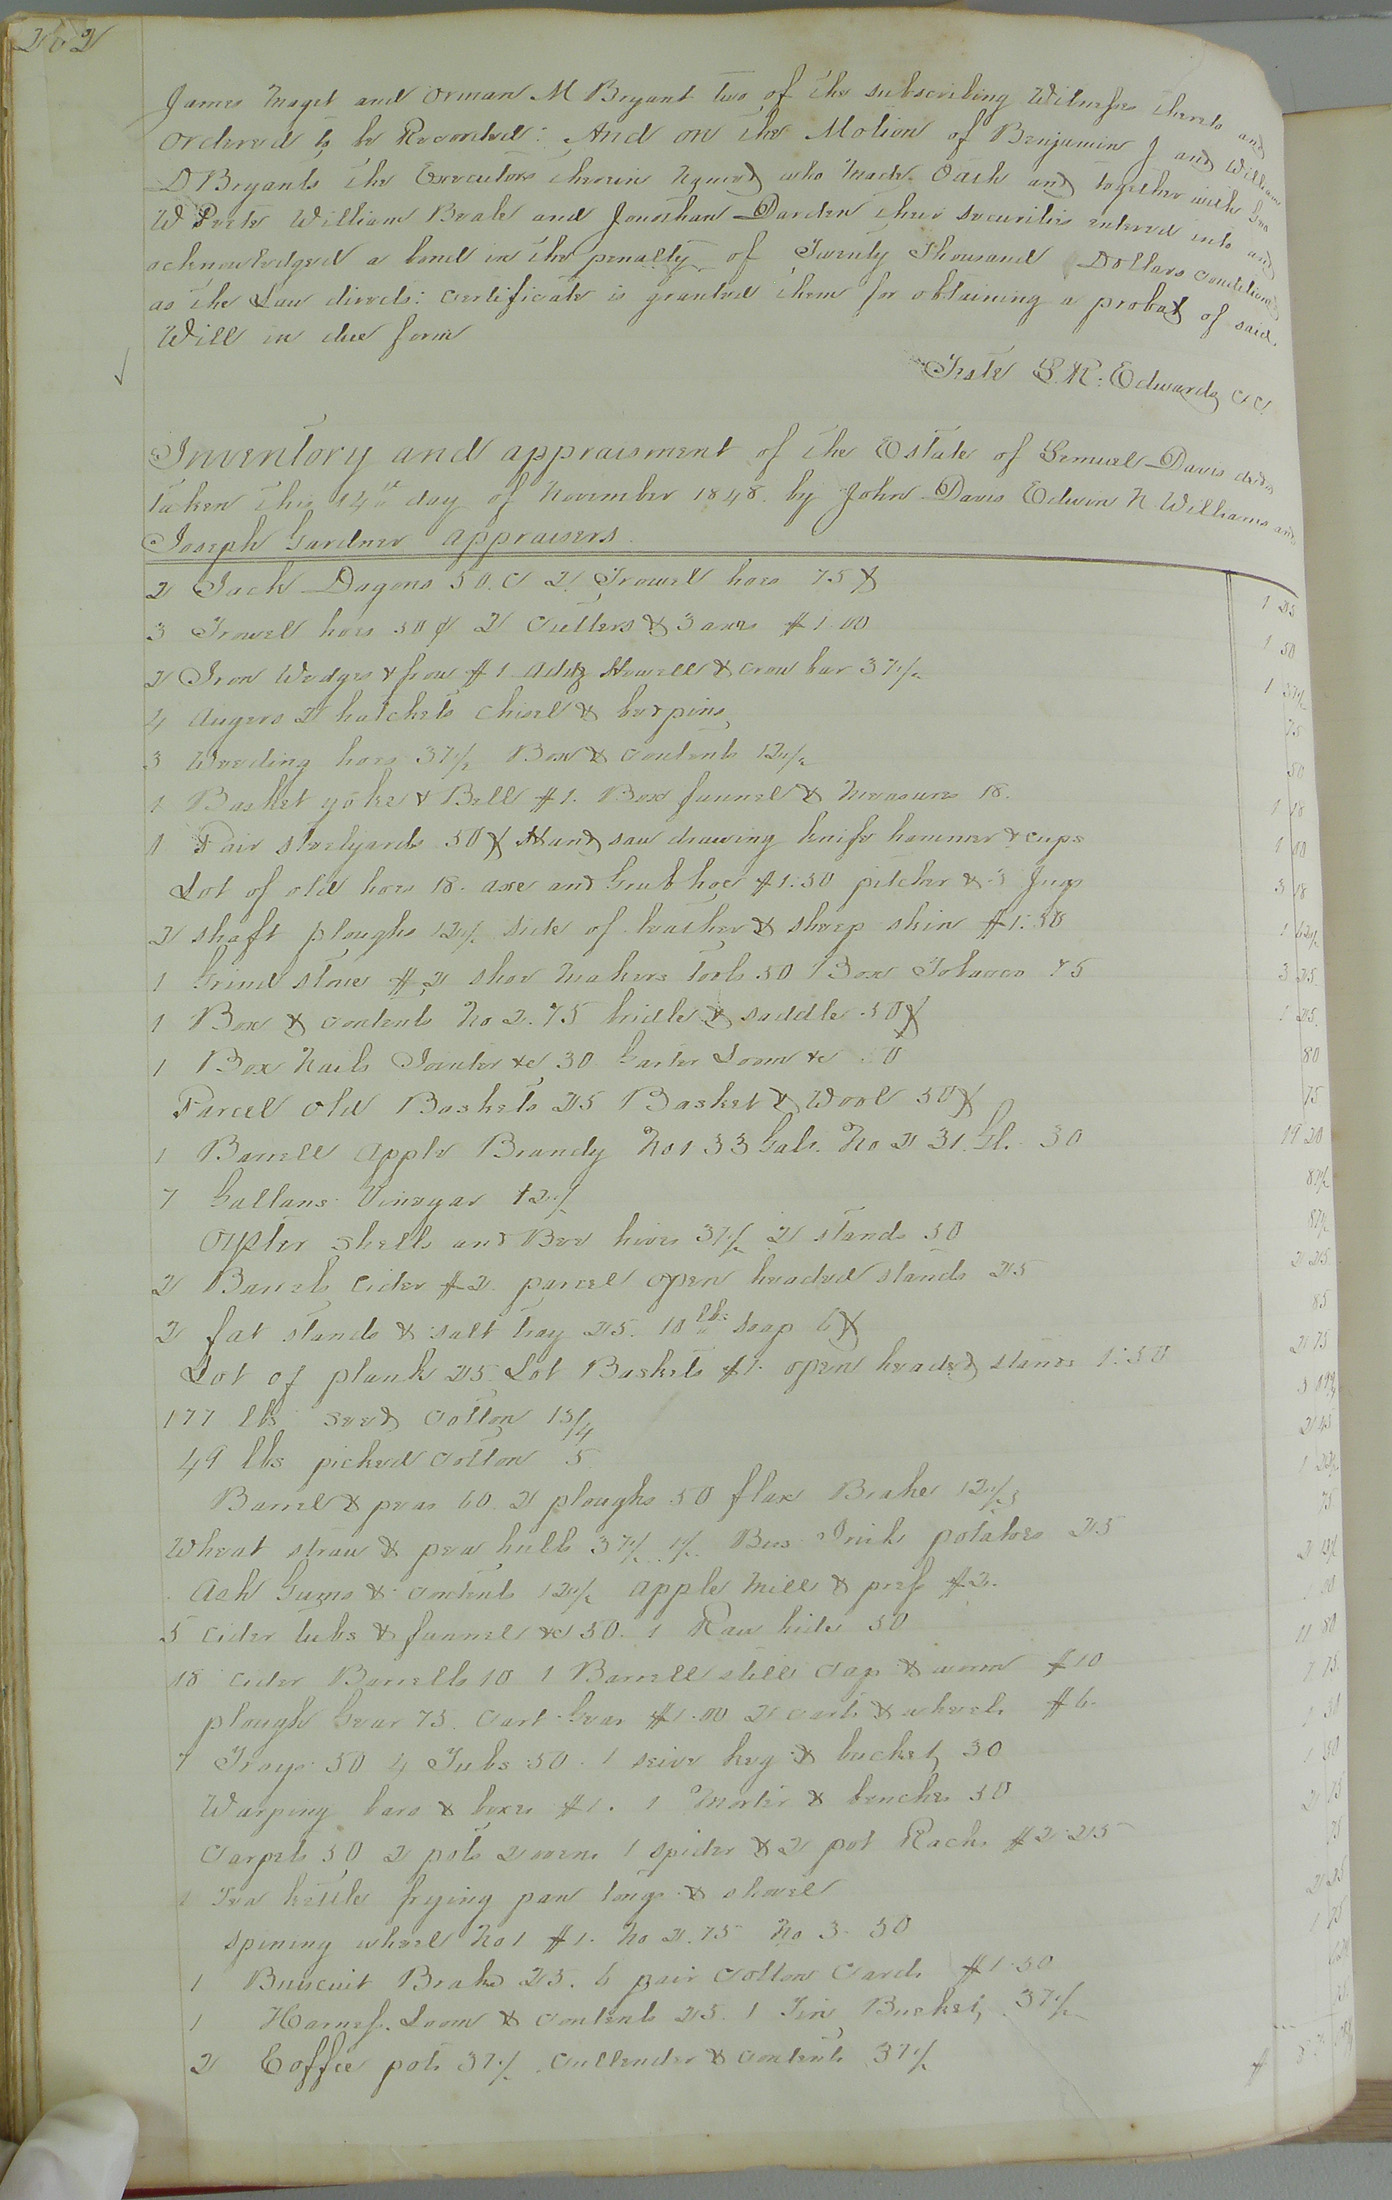 202
James Maget and Orman M Bryant two of the subscribing Witnesses thereto and
ordered to be Recorded: And on the Motion of Benjamin J and William
D Bryants the Executors therein Named who made Oath and together with
W Peete William Beale and Jonathan Darden their securities entered into and
acknowledged a bond in the penalty of Twenty Thousand Dollars conditioned
as the Law directs: certificate is granted them for obtaining a probat of said
Will in due form
Teste L. R: Edwards C C
Inventory and appraisment of the Estate of Lemuel Davis decd
taken this 14th day of November 1848. by John Davis Edwin N Williams and
Joseph Gardner appraisers.
2 Jack Dagons 50. C 2 Trowel hoes 75 ¢ 1 25
3 Trowel hoes 50 ¢ 2 Cutters & 3 axes $1.00 1 50
2 Iron Wedges & frow $1 Adz Howell & crow bar 37½ 1 37½
4 Augers 2 hatchets chisel & pins 75
3 Weeding hoes 37½ Box & contents 12½ 50
1 Basket yoke & Bell $1. Box funnel & Measures 18. 1 18
1 Pair steelyards 50 ¢ Hand saw drawing knife hammer & cups 1 00
Lot of old hoes 18. axe and Grub hoe $1:50 pitcher & 3 Jugs 3 18
2 shaft ploughs 12½ side of leather & sheep skin $1:50 1 62½
1 Grind stone $2 shoe Makers tools 50 1 Box Tobacco 75 3 25
1 Box & contents No 2. 75 bridle & saddle .50 ¢ 1 25
1 Box Nails Jointer &c 30 Garter Loom &c 80
Parcel old Baskets 25 Basket & Wool 50 ¢ 75
1 Barrell Apple Brandy No 1 33 Gals. No 2 31 Gl. 30 19 20
7 Gallans Vinegar 12½ 87½
Oyster shells and Bee hives 37½ 2 stands 50 87½
2 Barrels Cider $2. parcel open headed stands 25 2 25
2 fat stands & salt tray 25. 10 lbs soap 6 ¢ 85
Lot of plank 25 Lot Baskets $1. open headed stands 1:50 2 75
177 lbs seed Cotton 1¾
49 lbs picked Cotton 5 2 45
Barrel & peas 60 2 ploughs 50 flax Brake 12½
Wheat straw & pea hulls 37½ 1½ Bus Irish potatoes 25
Ash Gums & contents 12½ apple Mill & press $2.
5 cider tubs & funnel &c 50. 1 Raw hide 50
18 cider Barrells 10 1 Barrell still cap & worm $10 11 80
plough Gear 75. Cart Gear $1.00 2 carts & wheels $6. 7 75
7 Trays 50 4 Tubs 50. 1 seive keg & bucket 50
Warping bars & boxes $1. 1 Morter & benches 50 1 50
Carpets 50 2 pots 2 ovens 1 spider & 2 pot Racks $2.25 2 75
1 Tea kettle frying pan tongs & shovel
spining wheel No 1 $1. No 2. 75 No 3. 50
1 Buiscuit Brake 25. 6 pair Cotton Cards $1.50
1 Harness. Loom & contents 25. 1 Tin Bucket 37½
2 Coffee pots 37½ cullender & contents 37½